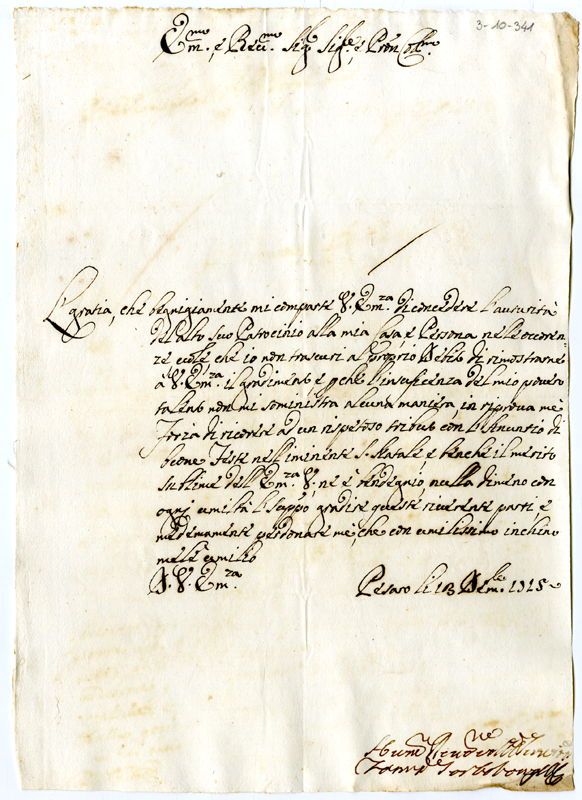 3-10-341
Em.mo e Rev.mo Sig. Sig.e e Pron Col.mo
La gratia, che benignamente mi comparte V. Em.za di concedere l'auturità
del alto suo Patrocinio alla mia Casa e Persona nelle occoren-
ze vole che io non trascuri al proprio di rimostrare
a V. Em.za il gradimento, e perche l'insuficenza del mio povero
talento non mi soministra alcuna maniera, in riprova mè
forza di ricorere ad un rispetoso tributo con l'Anuntio di
bone Feste nell'iminente S. Natale, e benchè il merito
sublime dell'Em.za V. ne è rendegnio nulla dimeno con
ogni umiltà la suppo, gradire queste riverente parti e
medemamente perdonare me, che con umilissimo inchino
mele umilio
D. V. Em.za
Pesaro li 13 Xbre 1715
Hum.